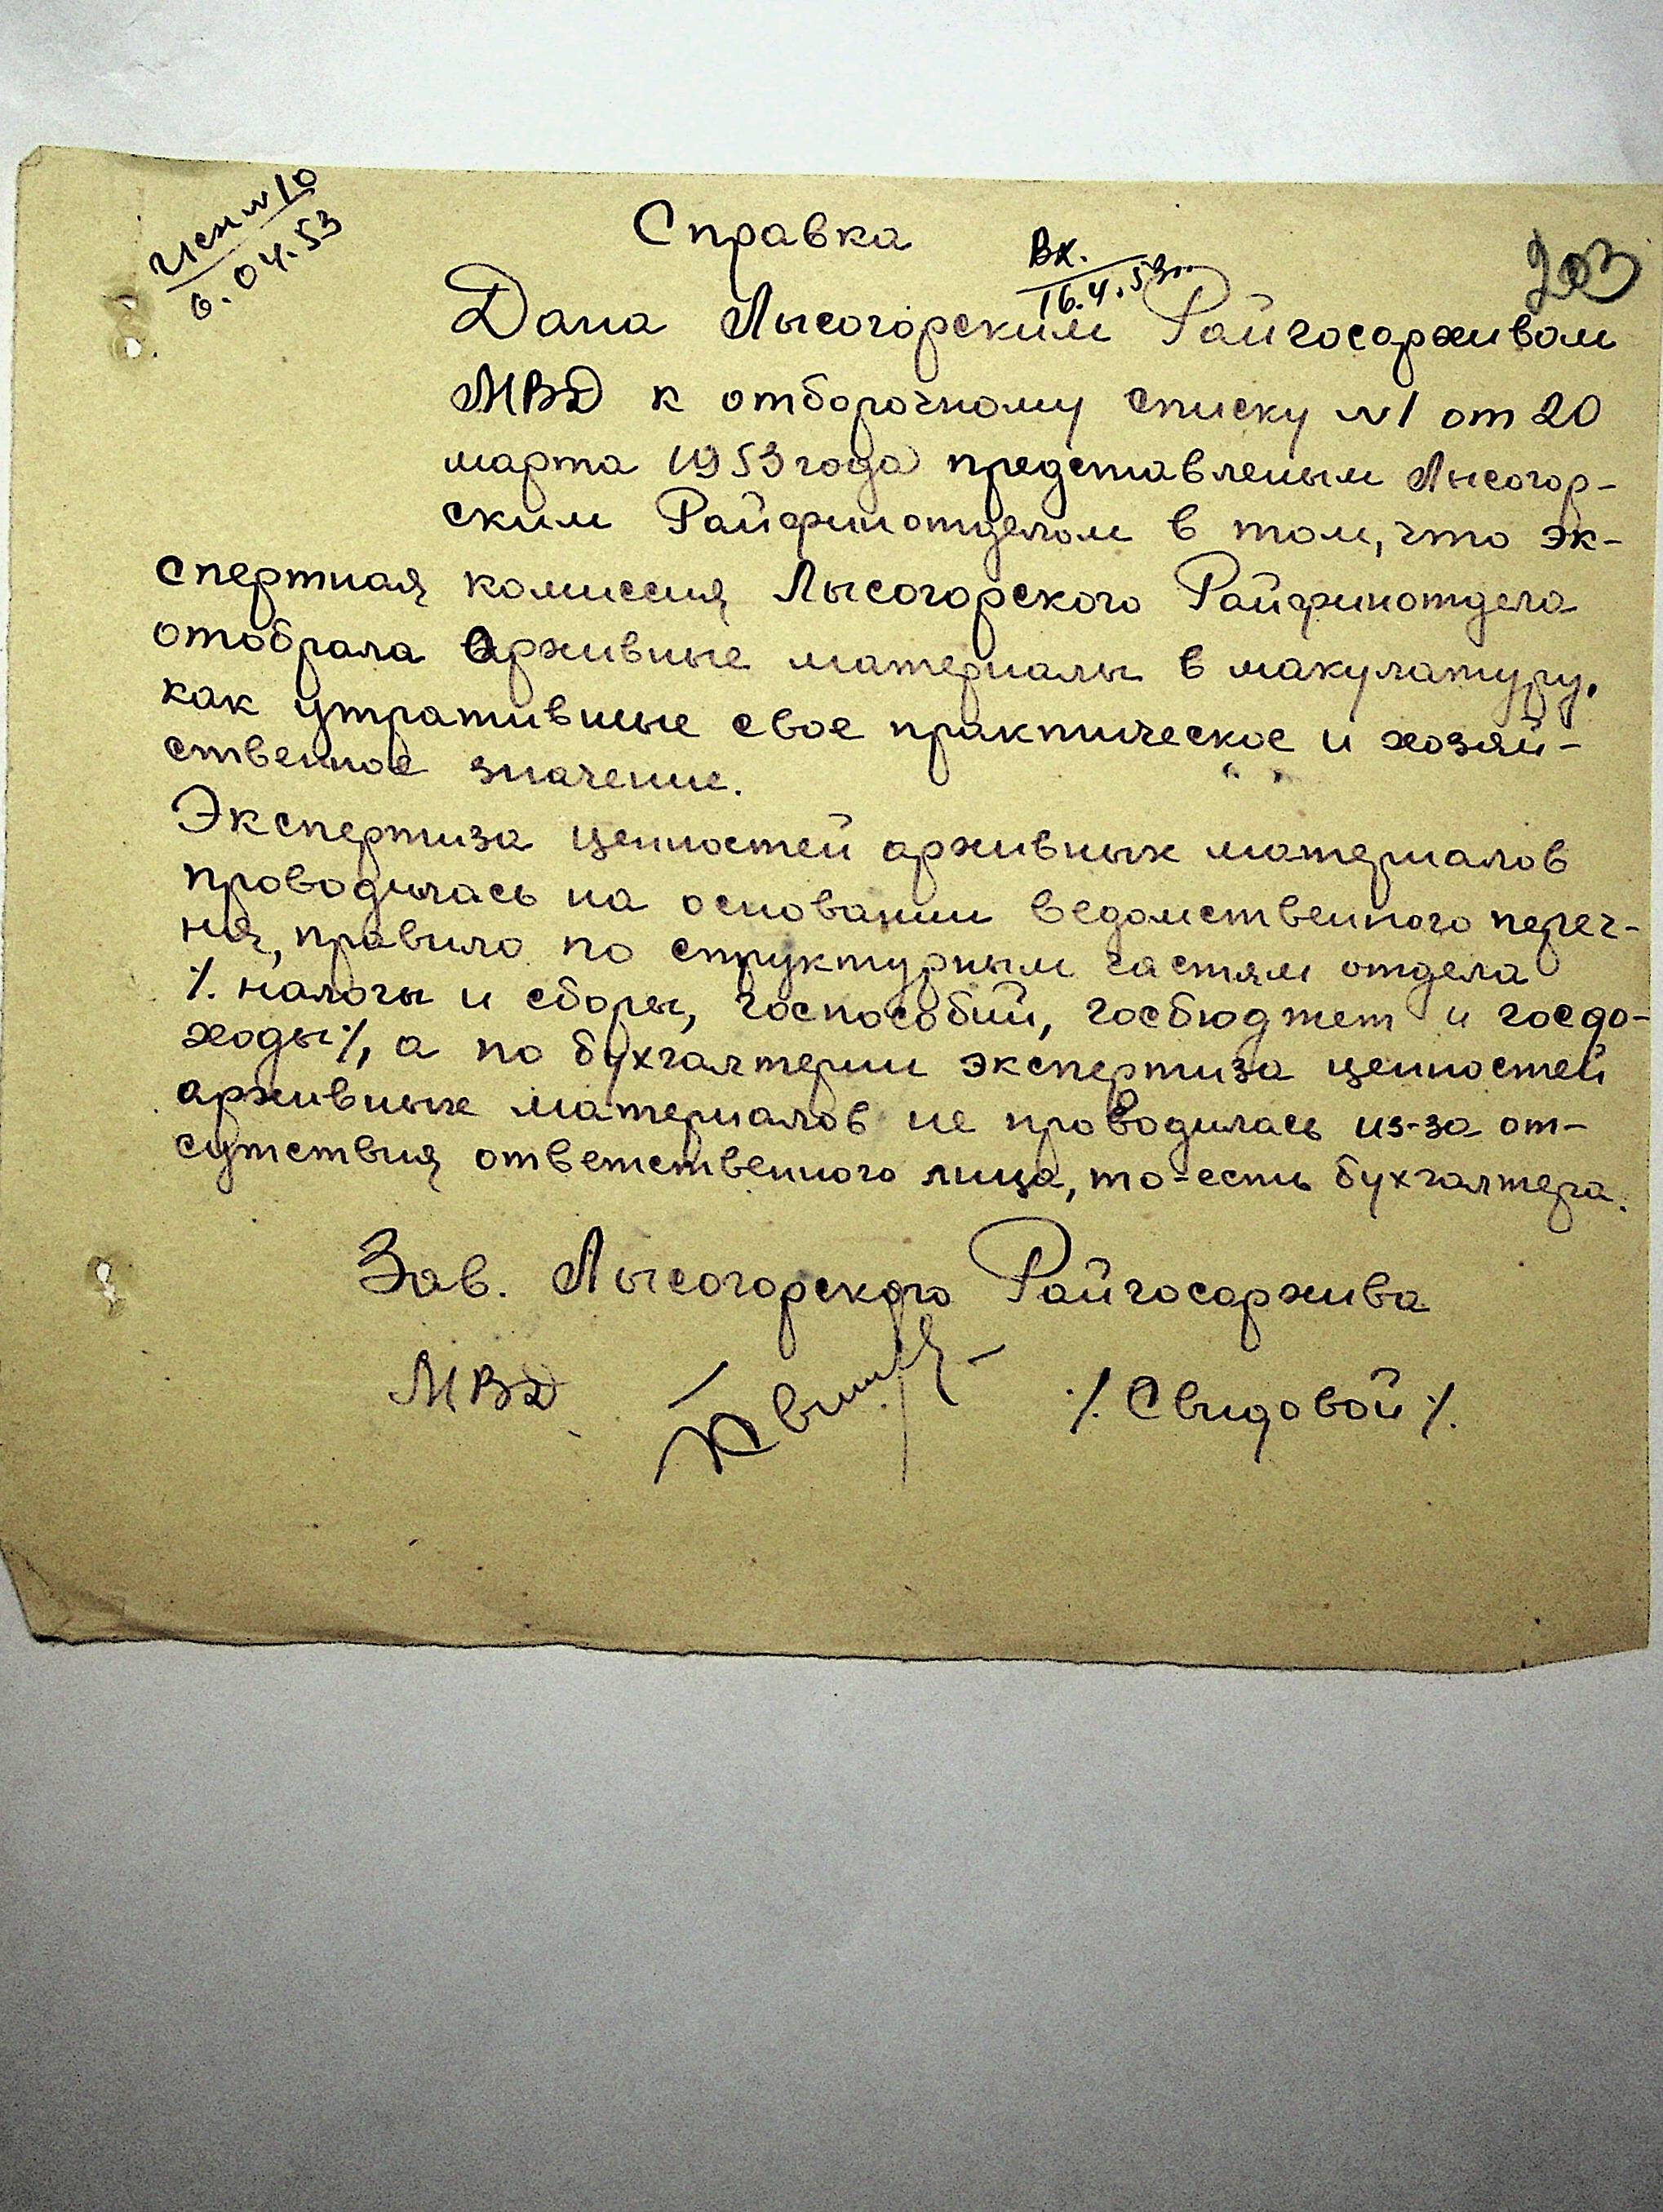 Исх №10
6.04.53
Справка
Вх.
16.4.53г.
203
Дана Лысогорским Райгосархивом
МВД к отборочному списку №1 от 20
марта 1953 года представленым Лысогор-
ским Райфинотделом в том, что эк-
спертная комиссия Лысогорского Райфинотдела
отобрала архивные материалы в макулатуру,
как утратившие свое практическое и хозяй-
ственное значение.
Экспертиза ценностей архивных материалов
проводилась на основании ведомственного переч-
ня, правило по структурным частям отдела
⁒ налоги и сборы, госпособий, госбюджет и госдо-
ходы⁒, а по бухгалтерии экспертиза ценностей
архивных материалов не проводилась из-за от-
сутствия ответственного лица, то-есть бухгалтера.
Зав. Лысогорского Райгосархива
МВД ⁒ Свидовой ⁒